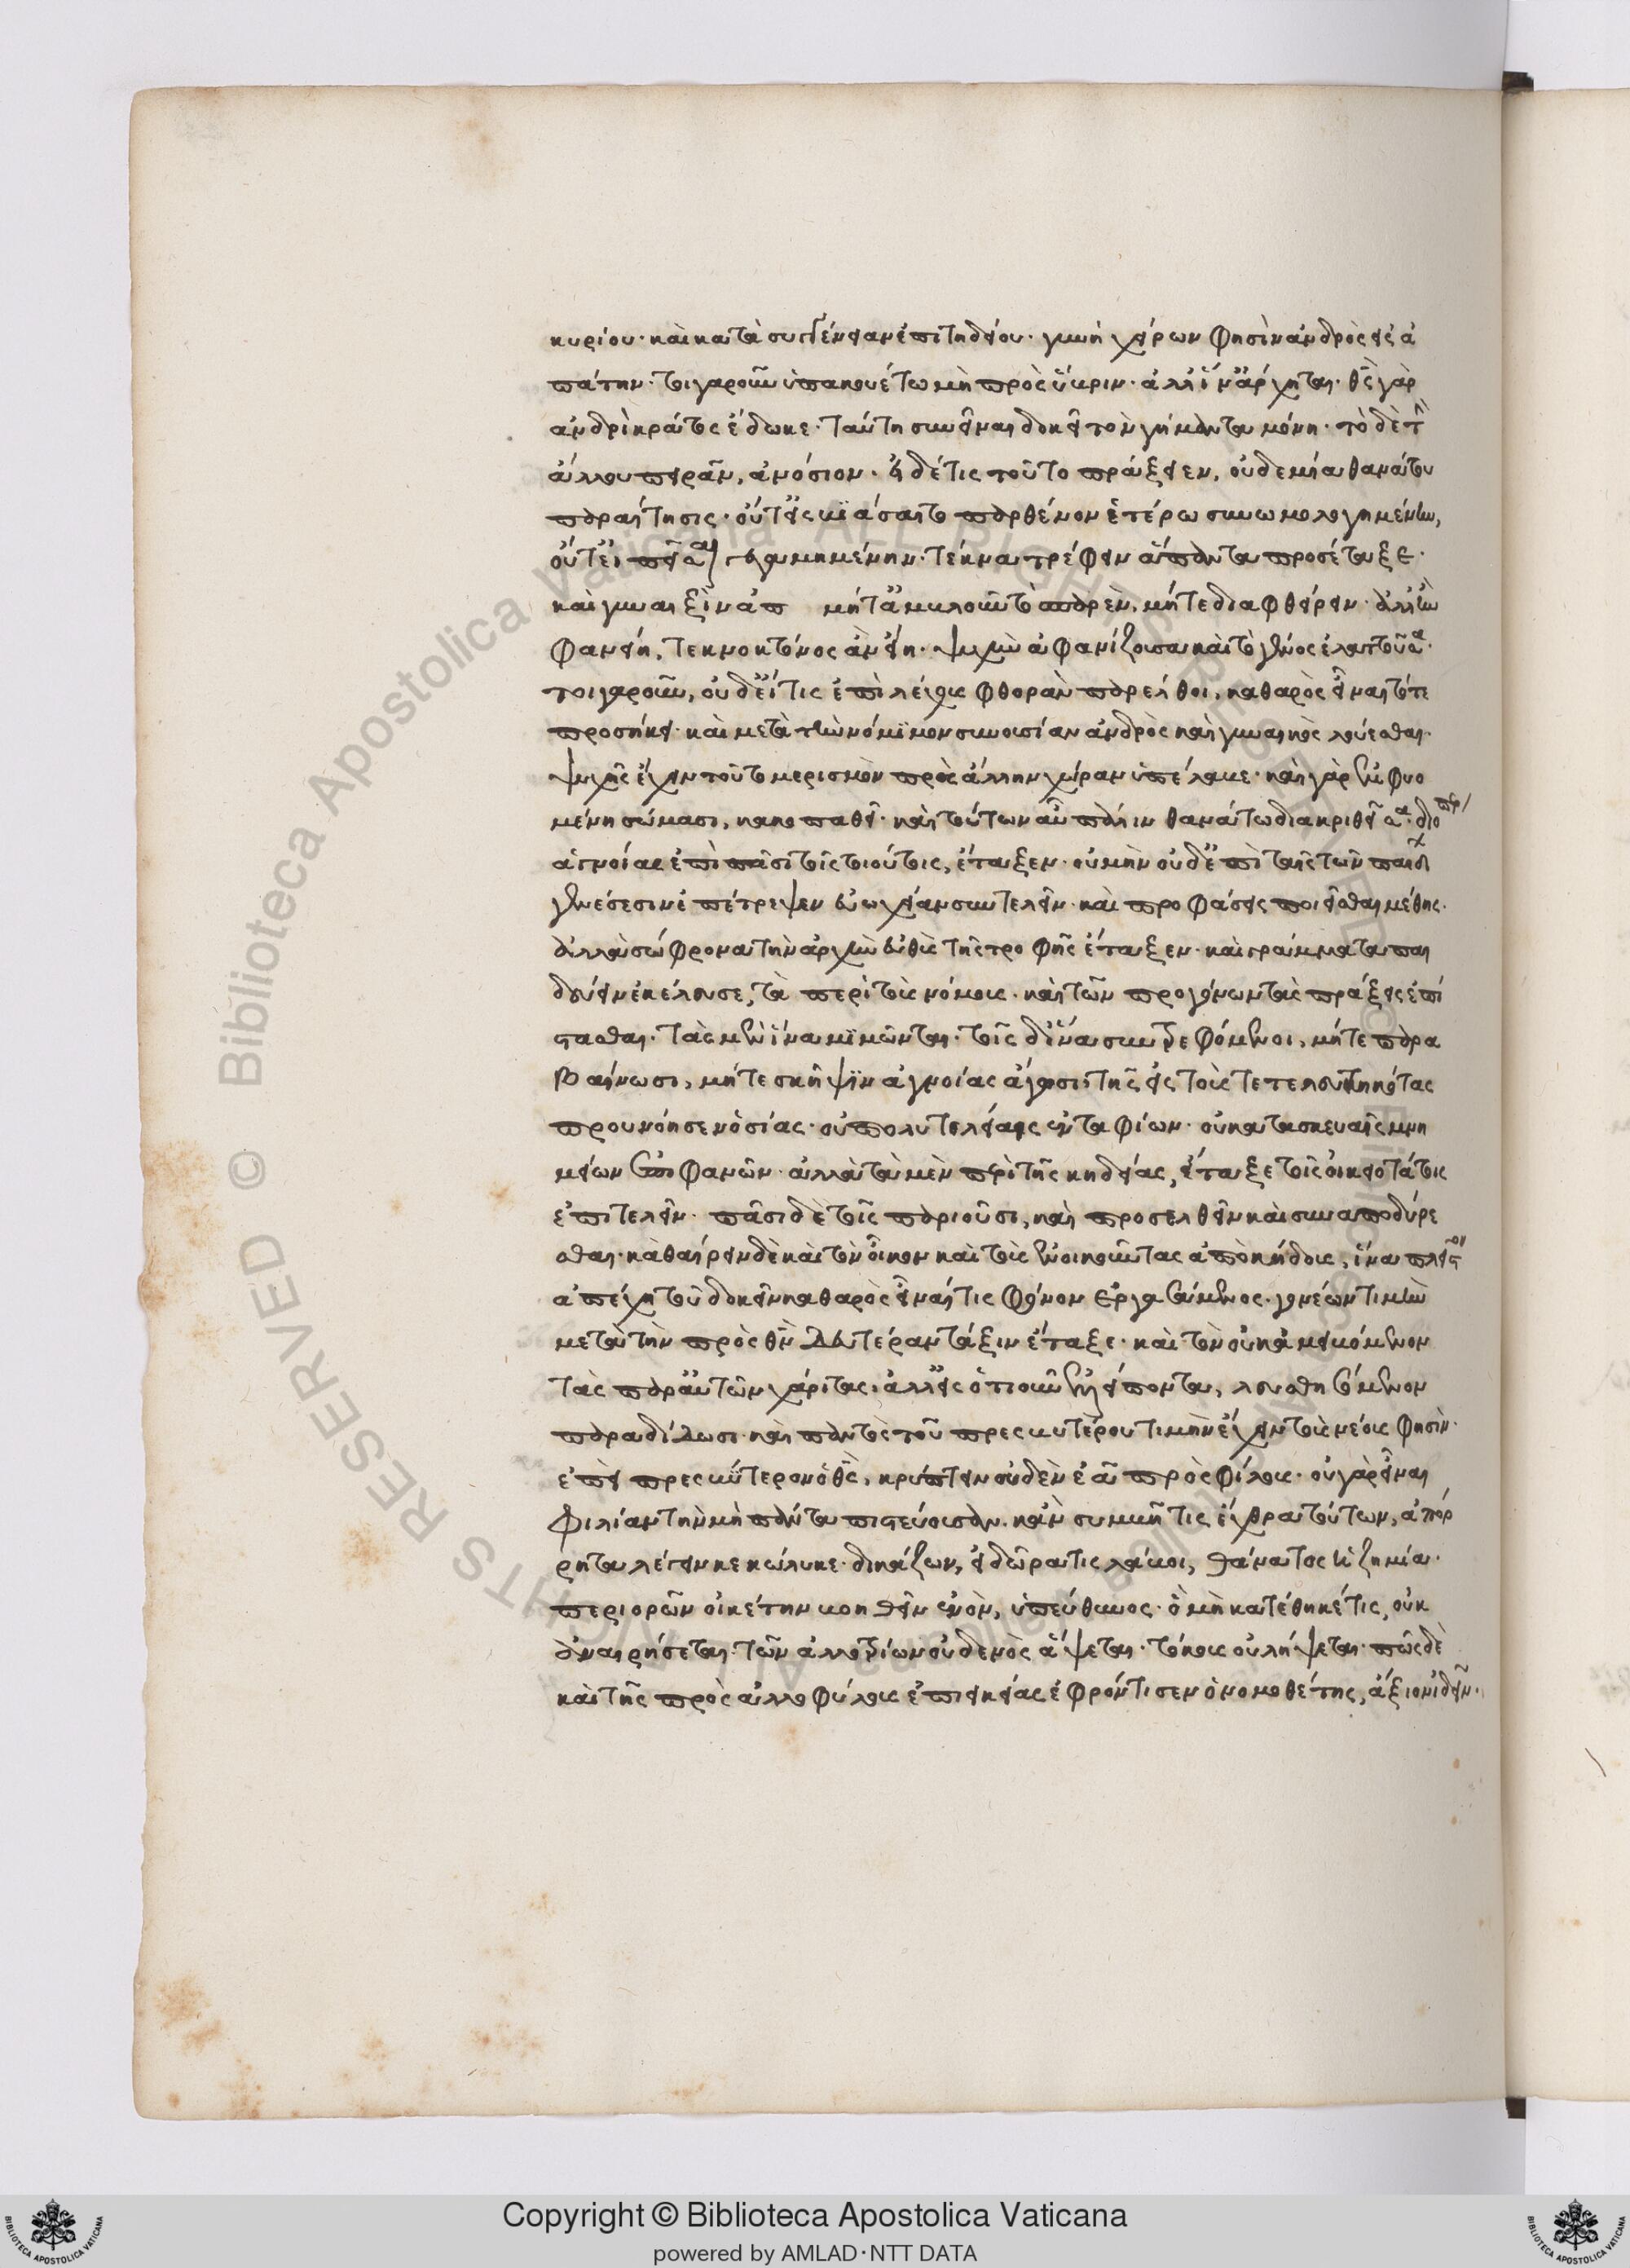 κυρίου· καὶ κατὰ συγγένειαν ἐπιτηδείου· γυνὴ χείρων φησὶν ἀνδρὸς εἰς ἅ
πάντα· τοιγαροῦν ὑπακουέτω μὴ πρὸς ὕβριν· ἀλλ' ἵν' ἄρχηται· θς γὰρ
ἀνδρὶ κράτος ἔδωκε· ταύτη συνεῖναι δεῖ τὸν γήμαντα μόνη· τὸ δὲ τὴν
ἄλλου πειρᾶν, ἀνόσιον· εἰ δέ τις τοῦτο πράξειεν, οὐδεμία θανάτου
παραίτησις· οὔτ' εἰ βιάσαιτο παρθένον ἑτέρω συνωμολογημένην,
οὔτ' εἰ πείσαι γεγαμημένην· τέκνα τρέφειν ἅπαντα προσέταξε·
καὶ γυναιξὶν ἀπ μήτ' ἀμβλοῦν τὸ σπαρὲν, μήτε διαφθείρειν· ἀλλ' ἢν
φανείη, τεκνοκτόνος ἂν εἴη· ψυχὴν ἀφανίζουσα καὶ τὸ γένος ἐλαττοῦσα·
τοιγαροῦν, οὐδ' εἴ τις ἐπὶ λέχους φθορὰν παρέλθοι, καθαρὸς εἶναι τότε
προσήκει· καὶ μετὰ τὴν νόμιμον συνουσίαν ἀνδρὸς καὶ γυναικὸς λούεσθαι·
ψυχῆς ἔχειν τοῦτο μερισμὸν πρὸς ἄλλην χώραν ὑπέλαβε· καὶ γὰρ ἐμφυο
μένη σώμασι, κακοπαθεῖ· καὶ τούτων αὖ πάλιν θανάτω διακριθεῖσα· διόπερ
ἁγνείας ἐπὶ πᾶσι τοῖς τοιούτοις, ἔταξεν· οὐ μὴν οὐδ' ἐπὶ ταῖς τῶν παίδων
γενέσεσιν ἐπέτρεψεν εὐωχίαν συντελεῖν· καὶ προφάσεις ποιεῖσθαι μέθης·
ἀλλὰ σώφρονα τὴν ἀρχὴν εὐθὺς τῆς τροφῆς ἔταξεν· καὶ γράμματα παι
δεύειν ἐκέλευσε, τὰ περὶ τοὺς νόμους· καὶ τῶν προγόνων τὰς πράξεις ἐπί
στασθαι· τὰς μὲν ἵνα μιμῶνται· τοῖς δ' ἵνα συντρεφόμενοι, μήτε παρα
βαίνωσι, μήτε σκῆψιν ἀγνοίας ἔχωσι· τῆς εἰς τοὺς τετελευτηκότας
προυνόησεν ὁσίας· οὐ πολυτελείαις ἐνταφίων· οὐ κατασκευαῖς μνη
μείων ἐπιφανῶν· ἀλλὰ τὰ μὲν περὶ τῆς κηδείας, ἔταξε τοῖς οἰκειοτάτοις
ἐπιτελεῖν· πᾶσι δὲ τοῖς παριοῦσι, καὶ προσελθεῖν καὶ συναποδύρε
σθαι· καθαίρειν δὲ καὶ τὸν οἶκον καὶ τοὺς ἐνοικοῦντας ἀπὸ κήδους, ἵνα πλεῖστον
ἀπέχη τοῦ δοκεῖν καθαρὸς εἶναί τις φόνον ἐργασάμενος· γονέων τιμὴν
μετὰ τὴν πρὸς θν δευτέραν τάξιν ἔταξε· καὶ τὸν οὐκ ἀμειβόμενον
τὰς παρ' αὐτῶν χάριτας· ἀλλ' εἰς ὁτιοῦν ἐλλείποντα, λευσθησόμενον
παραδίδωσι· καὶ παντὸς τοῦ πρεσβυτέρου τιμὴν ἔχειν τοὺς νέους φησίν·
ἐπεὶ πρεσβύτερον ὁ θς, κρύπτειν οὐδὲν ἐᾶ πρὸς φίλους· οὐ γὰρ εἶναι
φιλίαν τὴν μὴ πάντα πιστεύουσαν· κἂν συμβῆ τις ἔχθρα τούτων, ἀπόρ
ρητα λέγειν κεκώλυκε· δικάζων, εἰ δῶρά τις λάβοι, θάνατος ἡ ζημία·
περιορῶν οἰκέτην βοηθεῖν ἐνὸν, ὑπεύθυνος· ὃ μὴ κατέθηκέ τις, οὐκ
ἀναιρήσεται· τῶν ἀλλοτρίων οὐδενὸς ἅψεται· τόκους οὐ λήψεται· πῶς δὲ
καὶ τῆς πρὸς ἀλλοφύλους ἐπιεικείας ἐφρόντισεν ὁ νομοθέτης, ἄξιον ἰδεῖν·
Copyright © Biblioteca Apostolica Vaticana
powered by AMLAD·NTT DATA